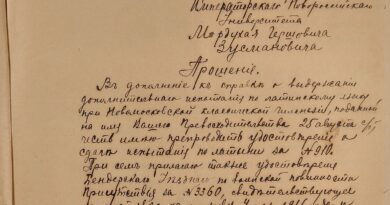 Императорскаго Новороссійскаго
Университета
Мордухая Гершовича
Зусмановича
Прошеніе.
Въ дополненіе къ справкѣ о выдержаніи
дополнительнаго испытанія по латинскому языку
при Новомосковской классической гимназіи, поданной
на имя Вашего Превосходительства 25 августа с/г
честь имѣю препроводить удостовѣреніе о
сдачѣ испытанія по латыни за № 910.
При семъ прилагаю также удостовѣреніе
Бендерскаго Уѣзднаго по воинской повинности
Присутствія за № 3360, свидѣтельствующее